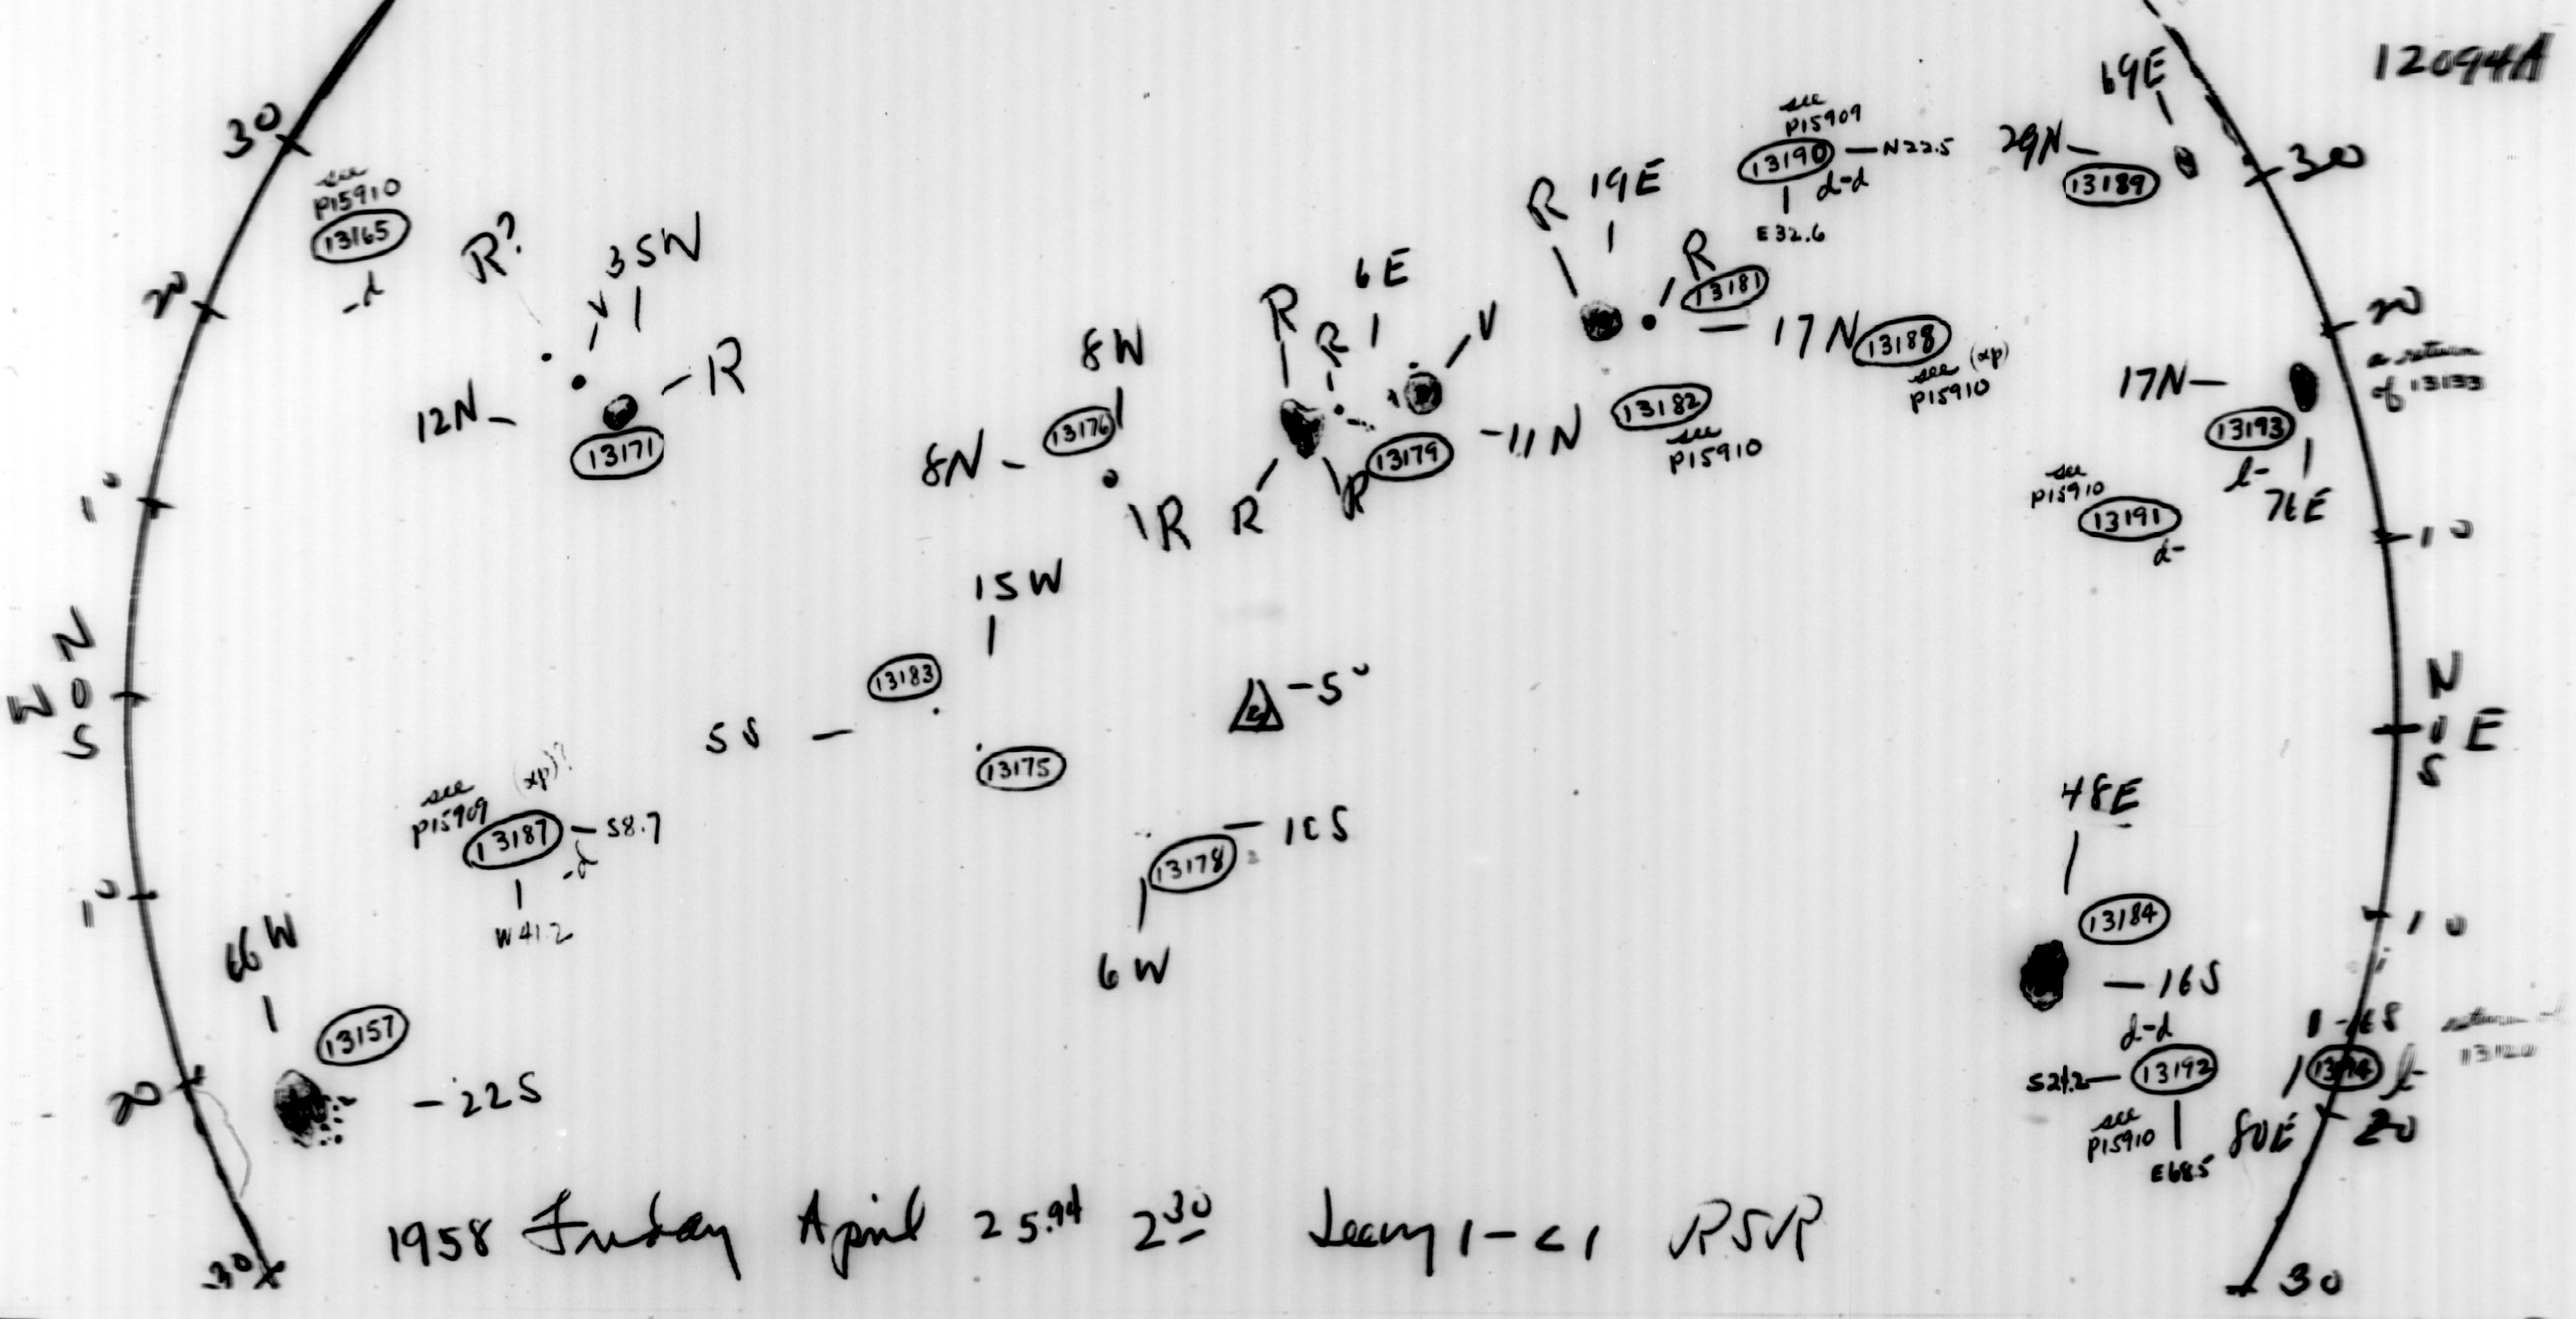 12094A
69E
30
see
P15910
13165
-d
R?
35W
V
R
12N-
13171
20
10
N
W 0
S
10
20
30
8W
13176
8N-
R
R
R
6E
V
R
R
13179
-11N
R
19E
R
13181
-17N
13188
see (xp)
P15910
13182
see
P15910
see
P15909
13190 -N22.5
d-d
E32.6
29N-
13189
30
20
a return
of 13133
17N-
13193
l-
76E
see
P15910
13191
d-
10
N
0 E
S
10
15W
13183
5S-
13175
-5°
-10S
13178
6W
see
P15909
(xp)?
13187 -S8.7
-d
W41.2
66W
13157
-22S
48E
13184
-16S
d-d
13192
see
P15910
E68.5
l-
80E
20
30
1958 Friday April 25.94 2 30 1-<1